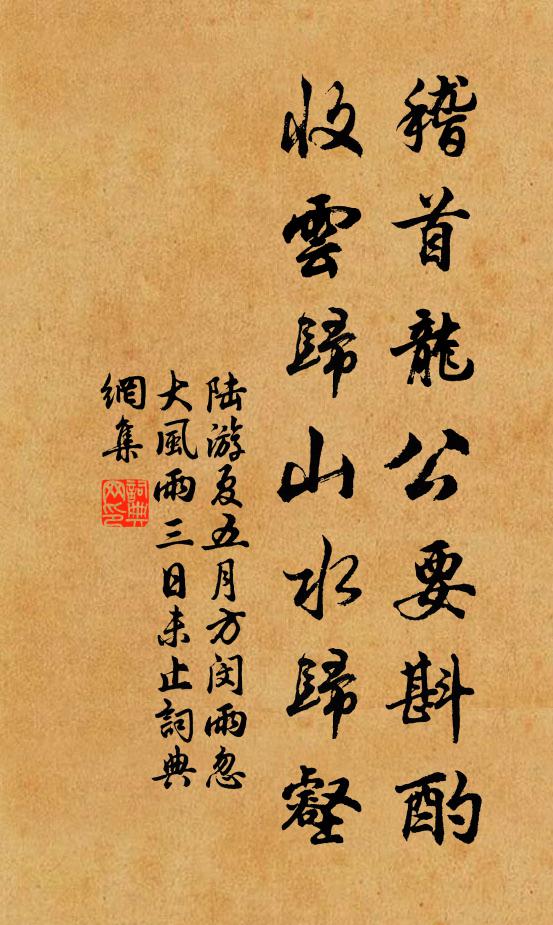 稽首龍公要斟酌
收雲歸山水歸壑
陆游夏五月方闵雨忽
大風雨三日未止詞典
網集
詞典
网印